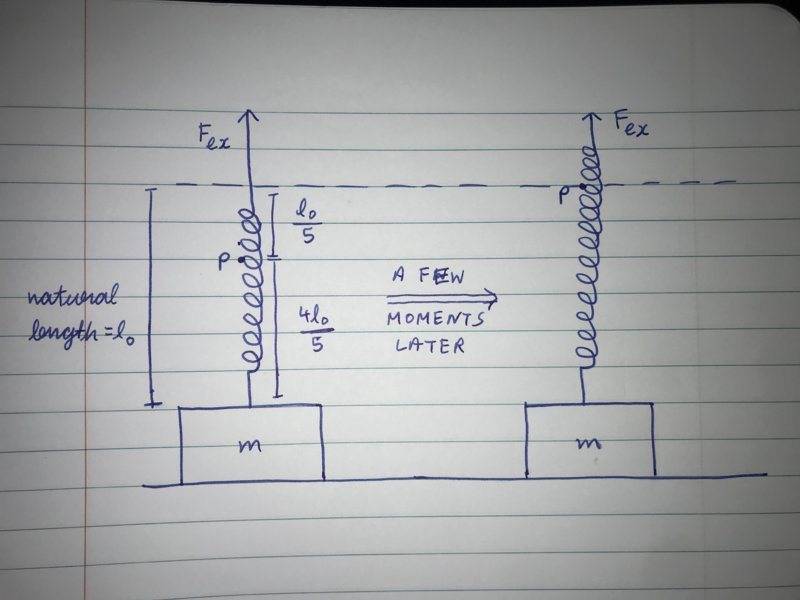 Fex
Fex
P
l₀
5
P
natural
length = l₀
4l₀
5
A FEW
MOMENTS
LATER
m
m